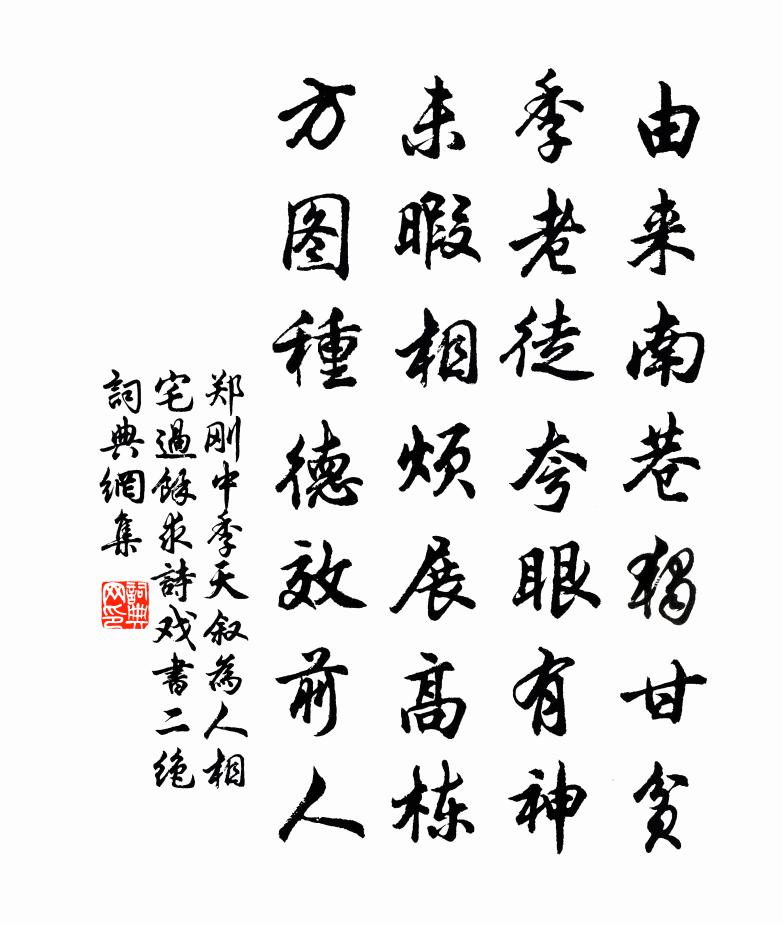 由来南巷独甘贫
季老徒夸眼有神
未暇相烦展高栋
方图種德效前人
郑刚中季天叙為人相
宅過餘求詩戏書二绝
詞典網集
詞典网印